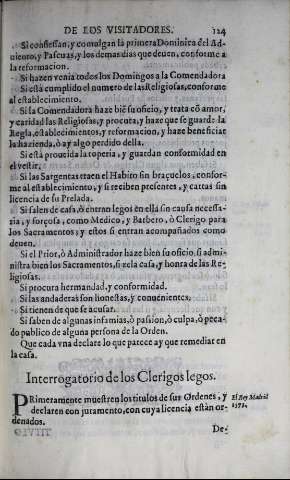 DE LOS VISITADORES. 124
Si confiessan, y comulgan la primera Dominica del Ad-
uiento, y Pascuas, y los demas dias que deuen, conforme a
la reformacion.
Si hazen venia todos los Domingos a la Comendadora
Si està cumplido el numero de las Religiosas, conforme
al establecimiento.
Si la Comendadora haze biẽ su oficio, y trata cõ amor,
y caridad las Religiosas, y procura, y haze que se guarde la
Regla, establecimientos, y reformacion, y haze beneficiar
la hazienda, ò ay algo perdido della.
Si està proueida la roperia, y guardan conformidad en
el vestir.
Si las Sargentas traen el Habito sin braçuelos, confor-
me al establecimiento, y si reciben presentes, y cartas sin
licencia de su Prelada.
Si salen de casa, ò entran legos en ella sin causa necessa-
ria, y forçosa, como Medico, y Barbero, ò Clerigo para
los Sacramentos; y estos si entran acompañados como
deuen.
Si el Prior, ò Administrador haze bien su oficio, si admi-
nistra bien los Sacramentos, si zela casa, y honra de las Re-
ligiosas.
Si procura hermandad, y conformidad.
Si las andaderas son honestas, y conuenientes.
Si tienen de que se acusar.
Si saben de algunas infamias, ò passion, ò culpa, ò peca-
do publico de alguna persona de la Orden.
Que cada vna declare lo que parece ay que remediar en
la casa.
Interrogatorio de los Clerigos legos.
PRimeramente muestren los titulos de sus Ordenes, y
declaren con juramento, con cuya licencia estàn or-
denados.
El Rey Madrid
1573.
De-